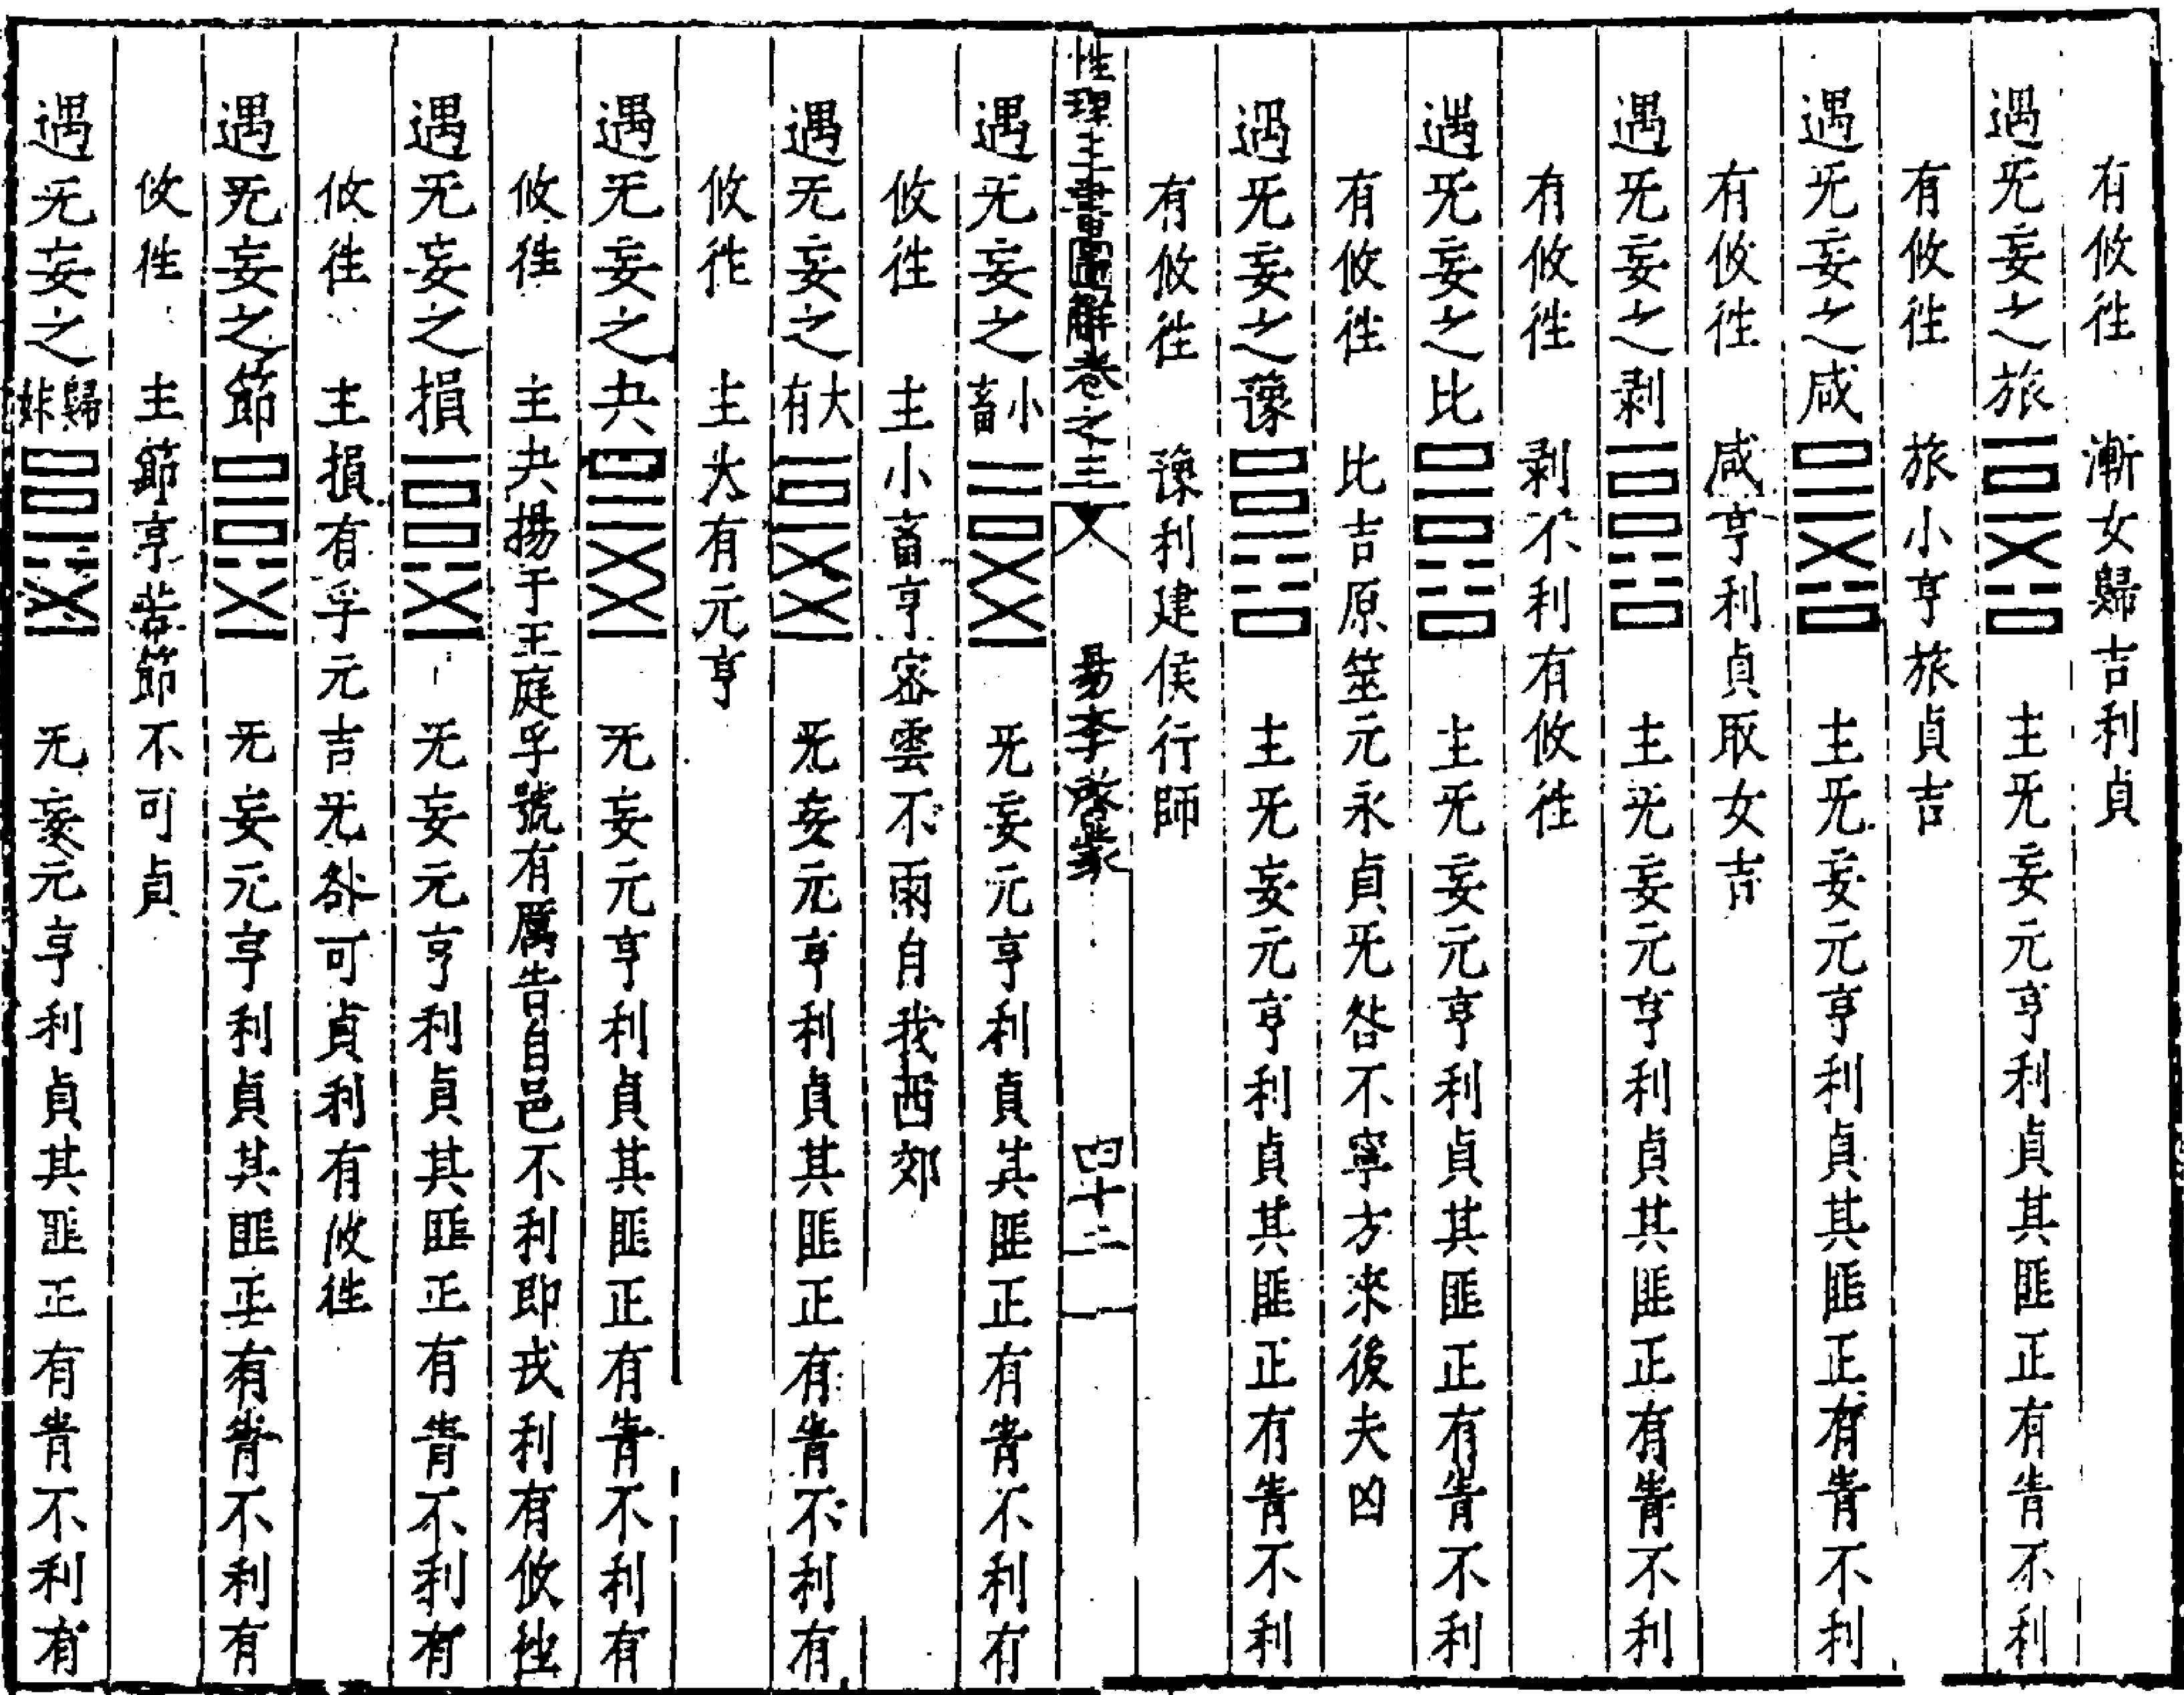 有攸徃　漸女歸吉利貞
遇旡妄之旅　主旡妄元亨利貞其匪正有眚不利
有攸徃　旅小亨旅貞吉
遇旡妄之咸　主旡妄元亨利貞其匪正有眚不利
有攸徃　咸亨利貞取女吉
遇旡妄之剥　主旡妄元亨利貞其匪正有眚不利
有攸徃　剥不利有攸徃
遇旡妄之比　主旡妄元亨利貞其匪正有眚不利
有攸徃　比吉原筮元永貞旡咎不寧方來後夫凶
遇旡妄之豫　主旡妄元亨利貞其匪正有眚不利
有攸徃　豫利建侯行師
性理主書圖解卷之三　易李啓蒙　四十三
遇旡妄之小畜　旡妄元亨利貞其匪正有眚不利有
攸徃　主小畜亨密雲不雨自我西郊
遇旡妄之大有　旡妄元亨利貞其匪正有眚不利有
攸徃　主大有元亨
遇旡妄之夬　旡妄元亨利貞其匪正有眚不利有
攸徃　主夬揚于王庭孚號有厲告自邑不利即戎利有攸徃
遇旡妄之損　旡妄元亨利貞其匪正有眚不利有
攸徃　主損有孚元吉旡咎可貞利有攸徃
遇旡妄之節　旡妄元亨利貞其匪正有眚不利有
攸徃　主節亨苦節不可貞
遇旡妄之歸妹　旡妄元亨利貞其匪正有眚不利有